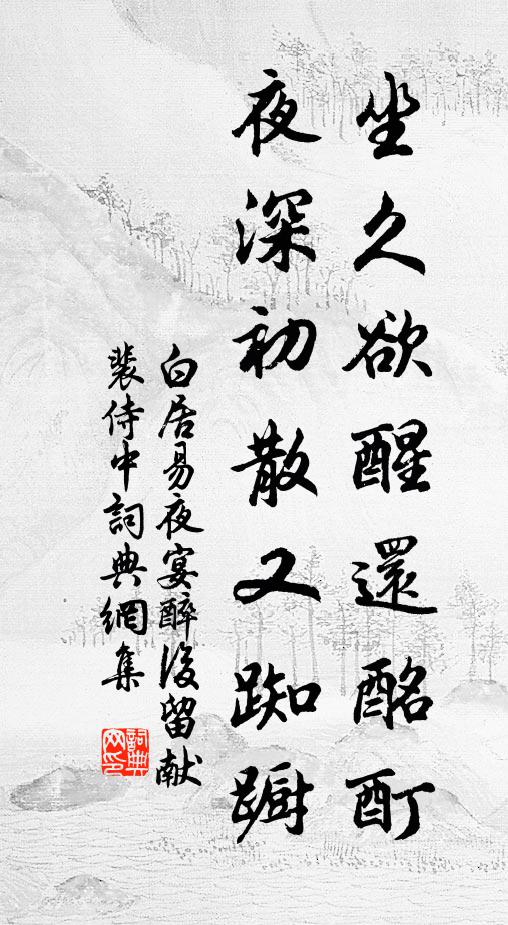 坐久欲醒還酩酊
夜深初散又踟蹰
白居易夜宴醉後留献
裴侍中詞典網集
詞典
网印